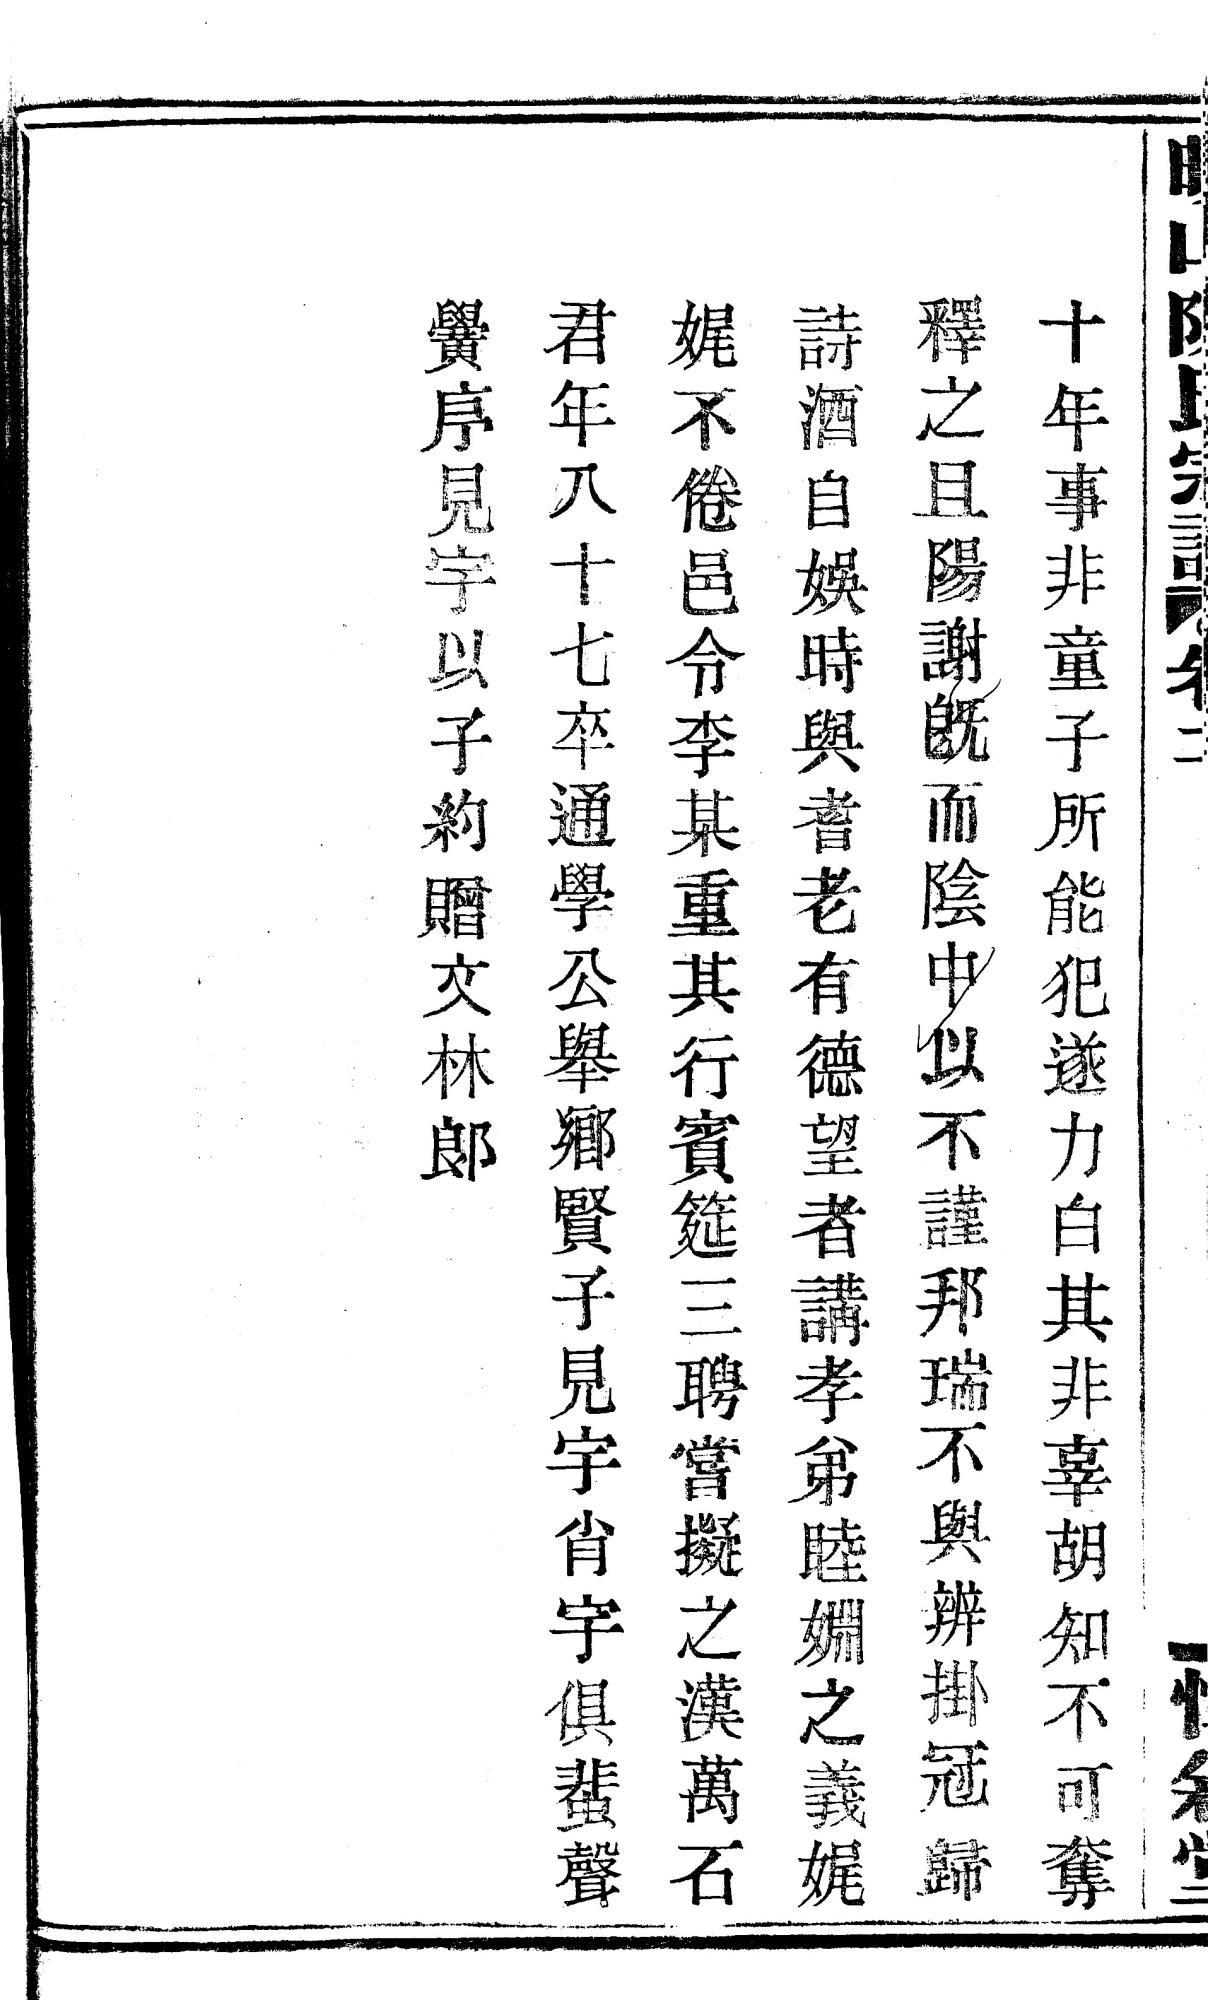 十年事非童子所能犯遂力白其非辜胡知不可奪
釋之且陽謝旣而陰中以不謹邦瑞不與辨掛冠歸
詩酒自娛時與耆老有德望者講孝弟睦婣之義娓
娓不倦邑令李某重其行賓筵三聘嘗擬之漢萬石
君年八十七卒通學公舉鄉賢子見宇肖宇俱蜚聲
黌序見宇以子約贈文林郎
山陳氏宗譜卷二